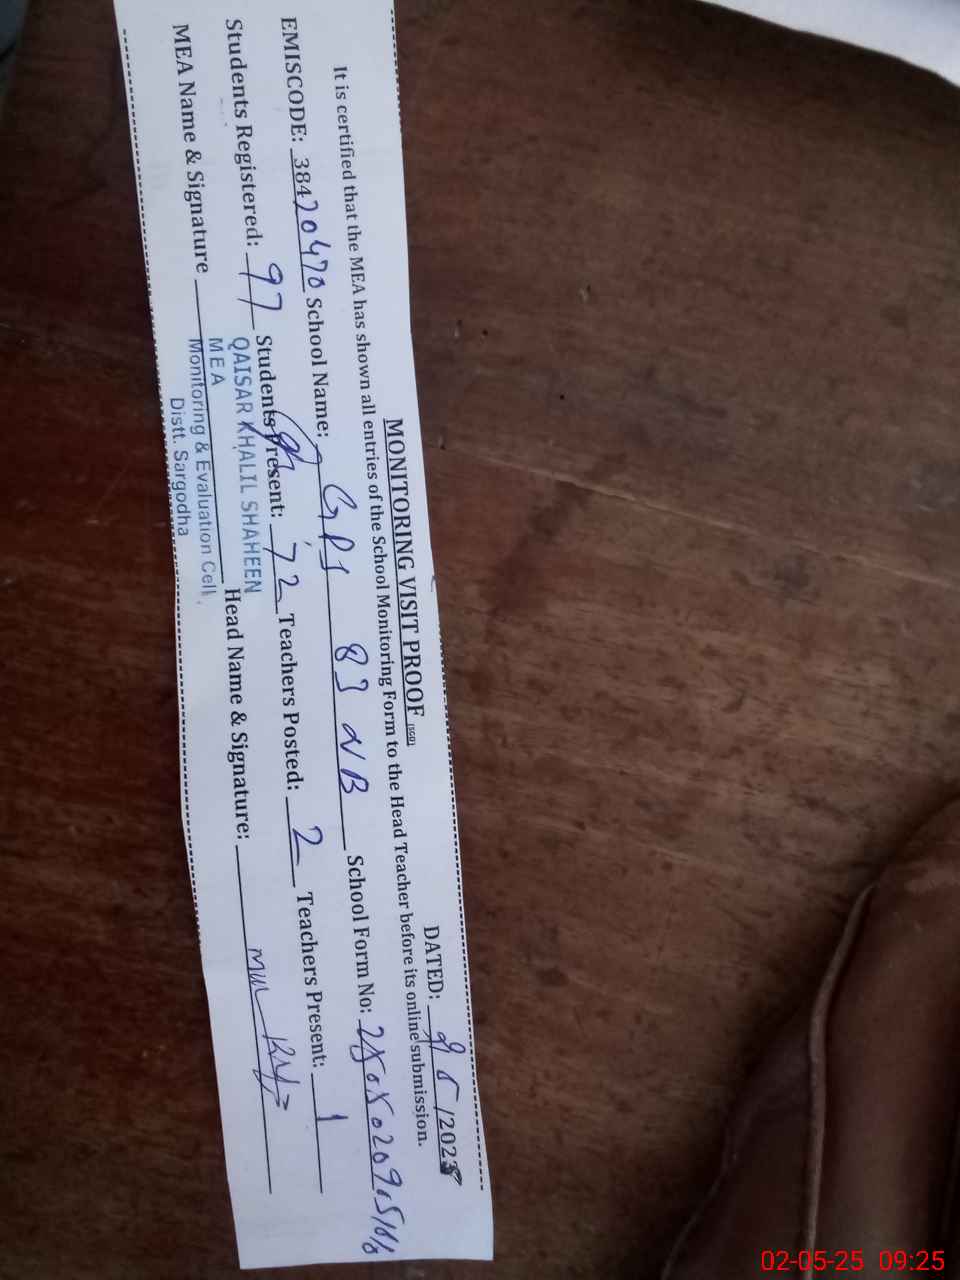 MONITORING VISIT PROOF (SGD)
DATED: 2 5 /2025
It is certified that the MEA has shown all entries of the School Monitoring Form to the Head Teacher before its online submission.
EMISCODE: 38420470 School Name: GPS 83 NB School Form No:
Students Registered: 97 Students Present: 72 Teachers Posted: 2 Teachers Present: 1
MEA Name & Signature Head Name & Signature:
QAISAR KHALIL SHAHEEN
MEA
Monitoring & Evaluation Cell,
Distt. Sargodha
02-05-25 09:25